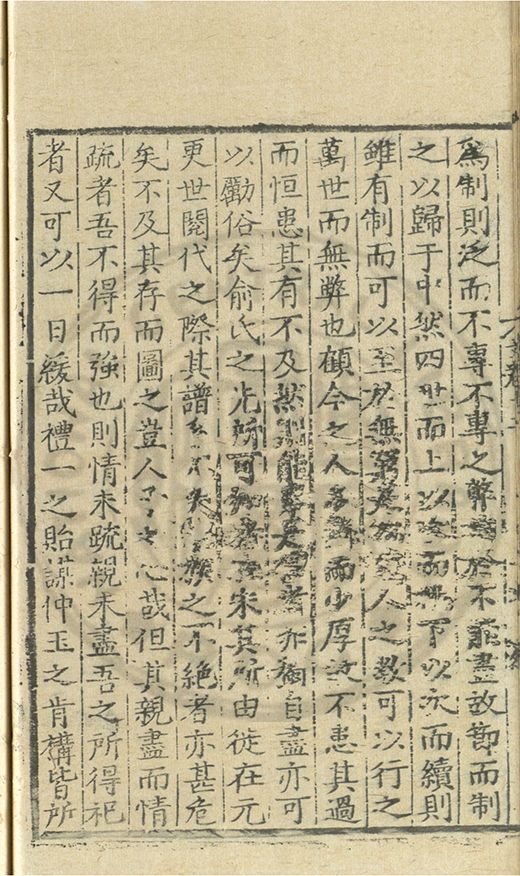 爲制則泛而不專不專之弊至於不能盡故節而制
之以歸于中然四世而上以而下以次而續則
雖有制而可以至於無窮人之教可以行之
萬世而無弊也顧今之人薄而少厚故不患其過
而恒患其有不及然能是者亦獨自盡亦可
以勵俗矣俞氏之先所可知者宋其所由徙在元
更世閱代之際其譜不失之不絕者亦甚危
矣不及其存而圖之豈人之心哉但其親盡而情
疏者吾不得而強也則情未疏親未盡吾之所得祀
者又可以一日緩哉禮一之貽謀仲玉之肯構皆所